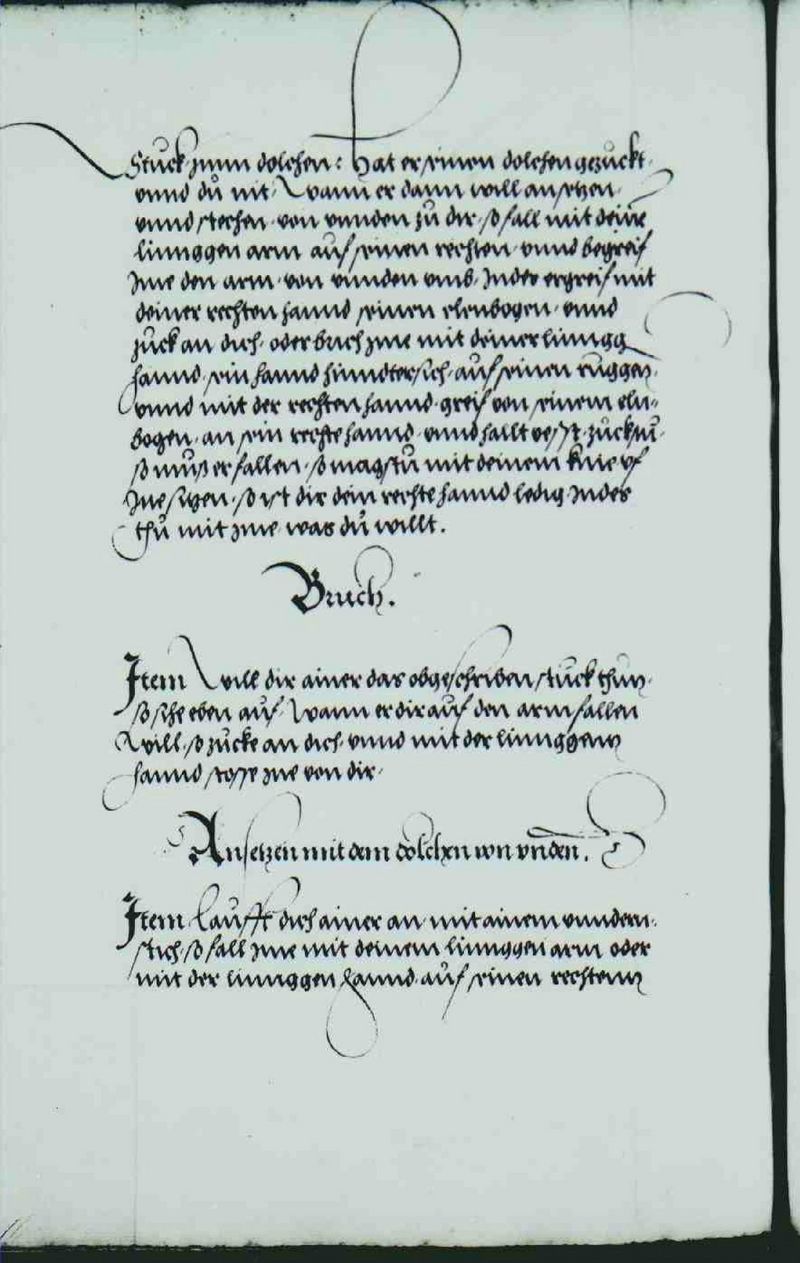 Stuck zum dolchen: Hat er einen dolchen gezuckt.
vnnd dů nit. Wann er dann will ansetzen.
vnnd stechen. von vnnden zů dir. so fall mit deine
linnggen arm auf seinen rechten vnnd begreif
Jme den arm. von vnnden vmb. Jndes ergreif mit
deiner rechten hannd seinen elenbogen. vnnd
zuck an dich. oder brich jme mit deiner linngg
hannd. sein hannd hinndtersich. auf seinen ruggen.
vnnd mit der rechten hannd. greif von seinem eln=
bogen. an sein rechte hannd. vnnd hallt vesst. zuck zů.
so můs er fallen. so magstu mit deinem knie vf
Jne sitzen. so ist dir dein rechte hannd ledig Jndes
thů mit jme was dů willt.
Bruch.
Jtem Will dir ainer das obgeschriben stuck thun.
so sihe eben auf. Wann er dir auf den arm fallen
Will. so zucke an dich. vnnd mit der linnggenn
hannd stosse jne von dir.
Ansetzen mit dem dolchen von vnden.
Jtem Laufft dich ainer an mit ainem vnndern.
stich. so fall jme mit deinem linnggen arm oder
mit der linnggen hannd. auf seinen rechtenn